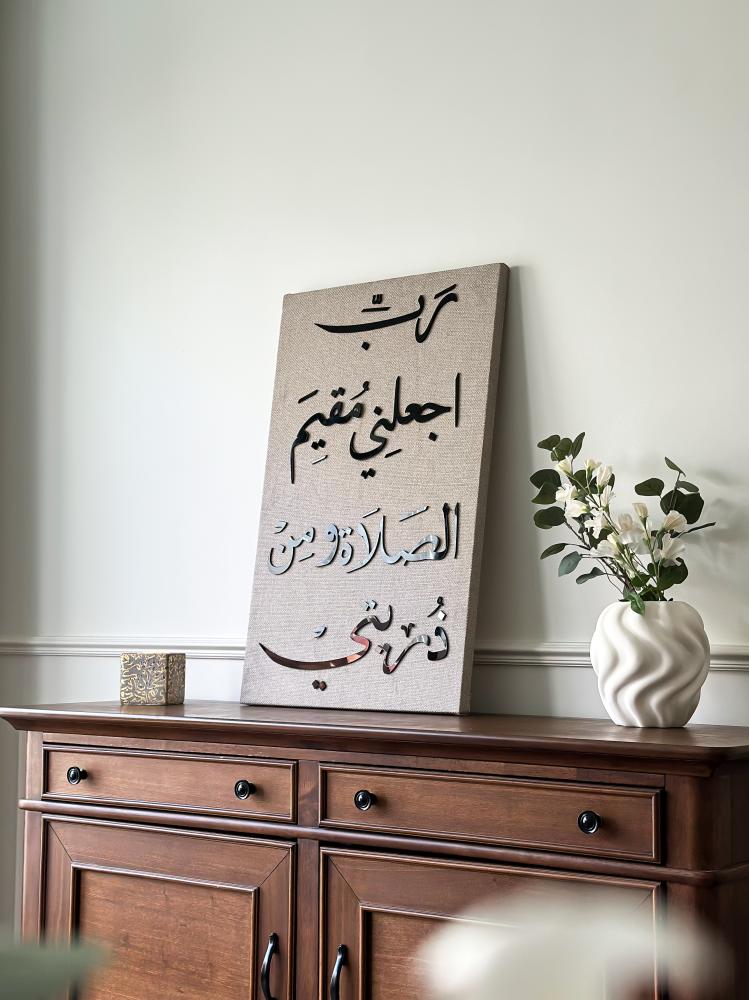 رَبِّ
اجعلنِي مُقيِمَ
الصَلَاةَ ومِنْ
ذُريتي